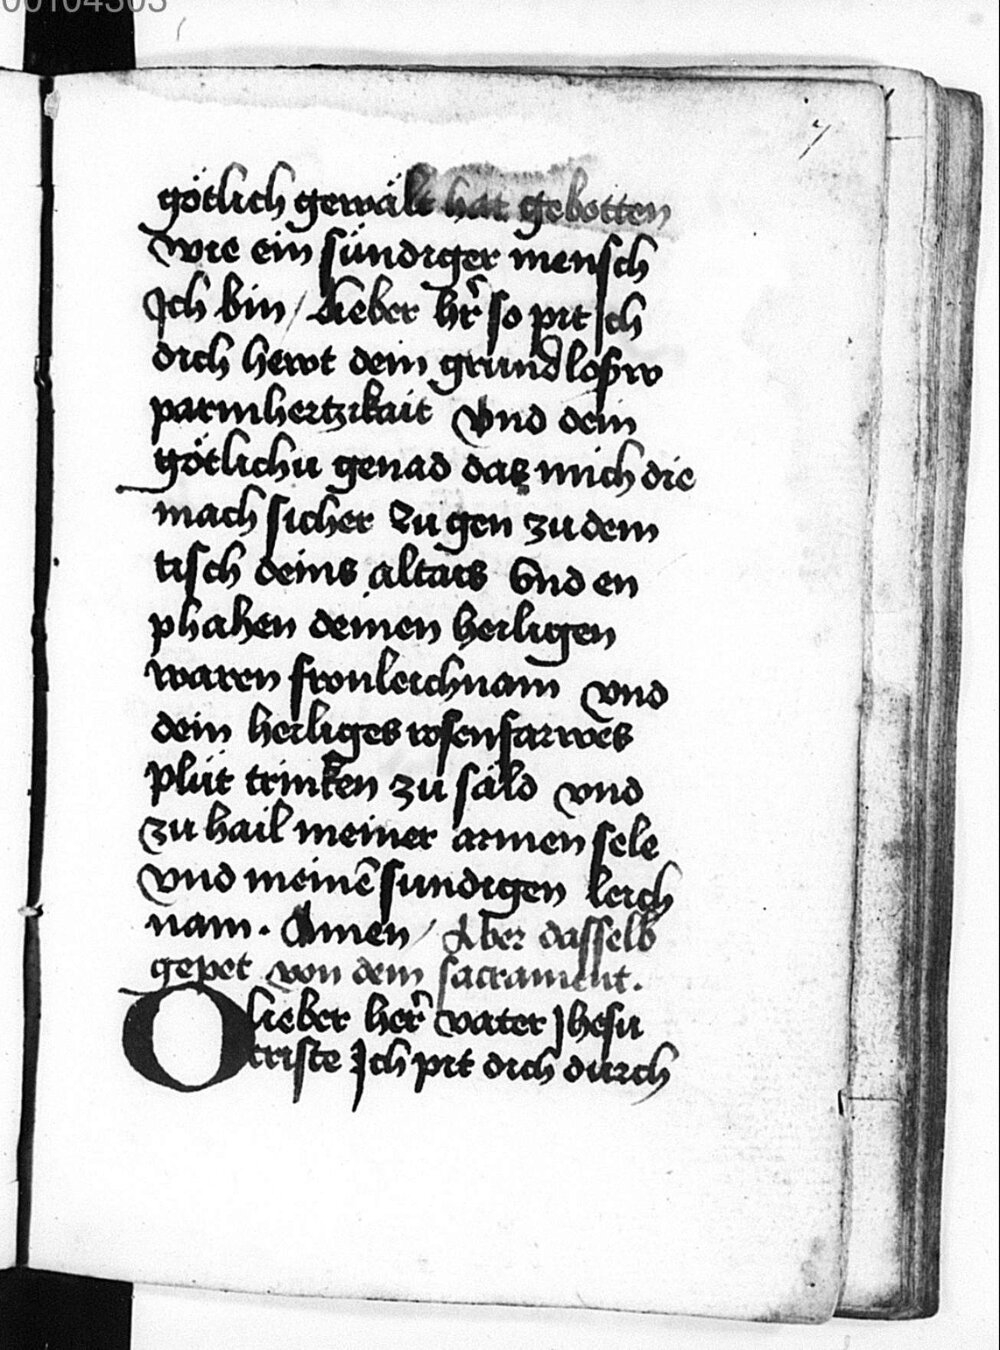 00104303
7
götlich gewält hat gebotten
wie ein sündiger mensch
Ich bin / lieber hr̄ so pit ich
dich hewt dein grundlosw
parmhertzikait vnd dein
götlichu genad daz mich die
mach sicher zu gen zu dem
tisch deins altars vnd en
phahen deinen heiligen
waren fronleichnam vnd
dein heiliges rosenfarwes
plüt trinken zu säld vnd
zu hail meiner armen sele
vnd meinē sundigen leich
nam. Amen / Aber dasselb
gepet von dem sacrament.
O lieber her̄ vater Jhesu
criste Ich pit dich durch